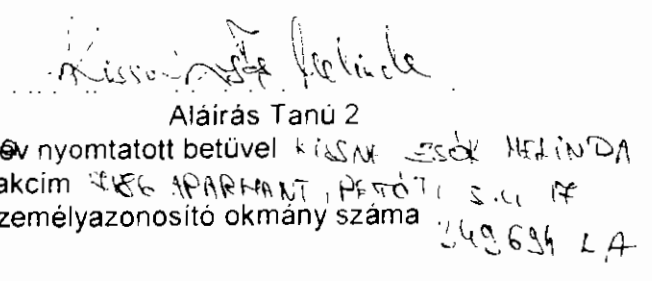 Melinda
Aláírás Tanú 2
év nyomtatott betüvel KISSNÉ ZSÓK MELINDA
akcím APARHANT, PETŐFI S. U. 17
zemélyazonosító okmány száma
249694 LA